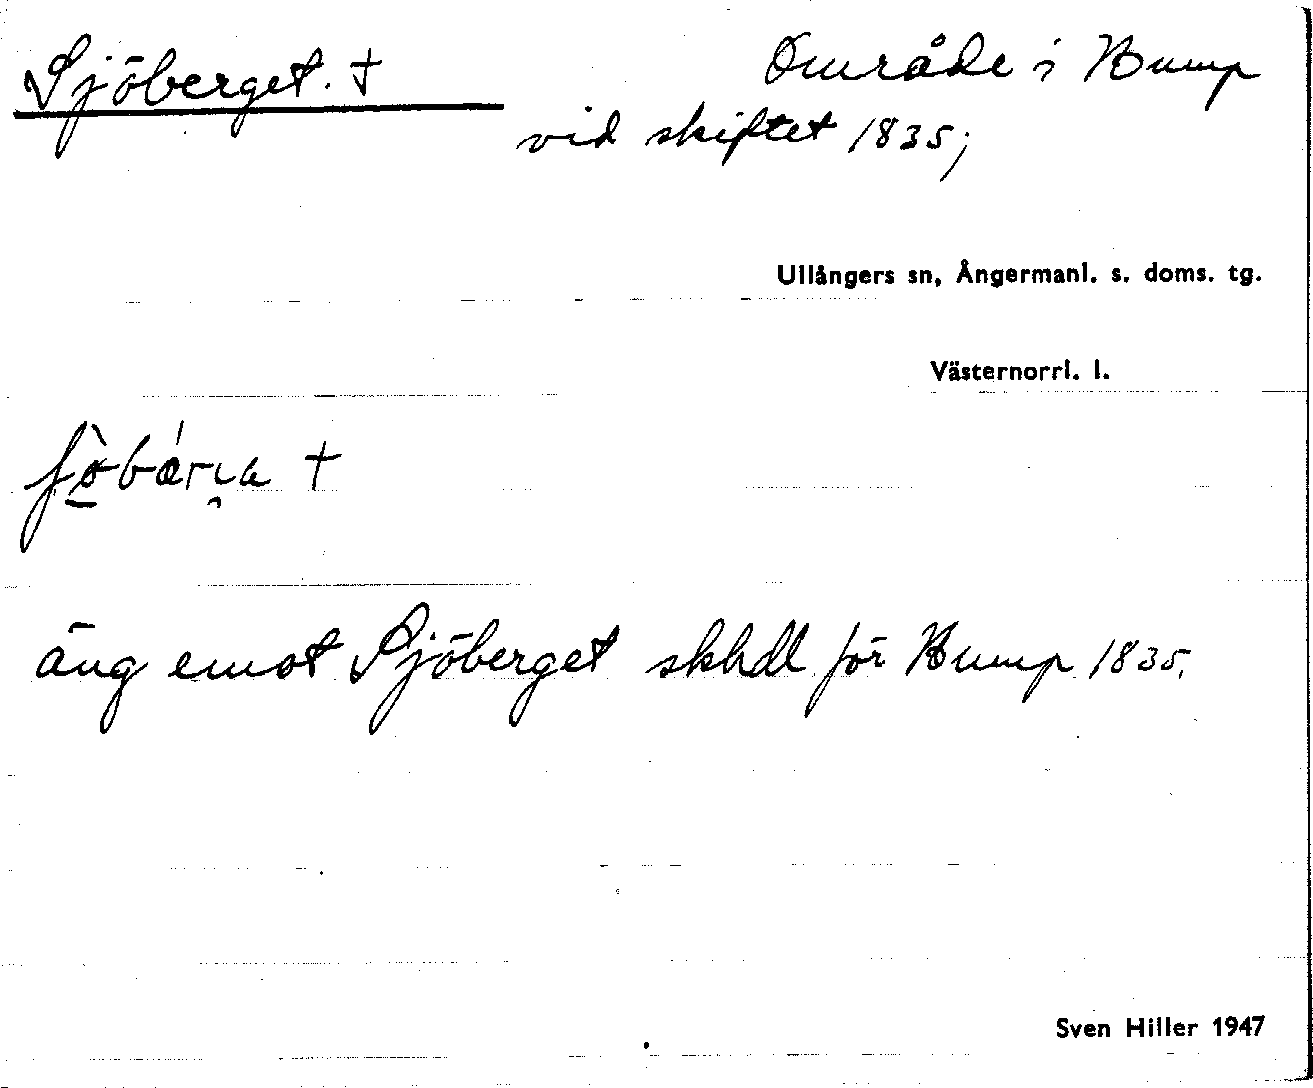 Sjöberget. † Område i Bump
vid skiftet 1835;
Ullångers sn, Ångermanl. s. doms. tg.
Västernorrl. l.
†
äng emot Sjöberget skhdl för Bump 1835.
Sven Hiller 1947